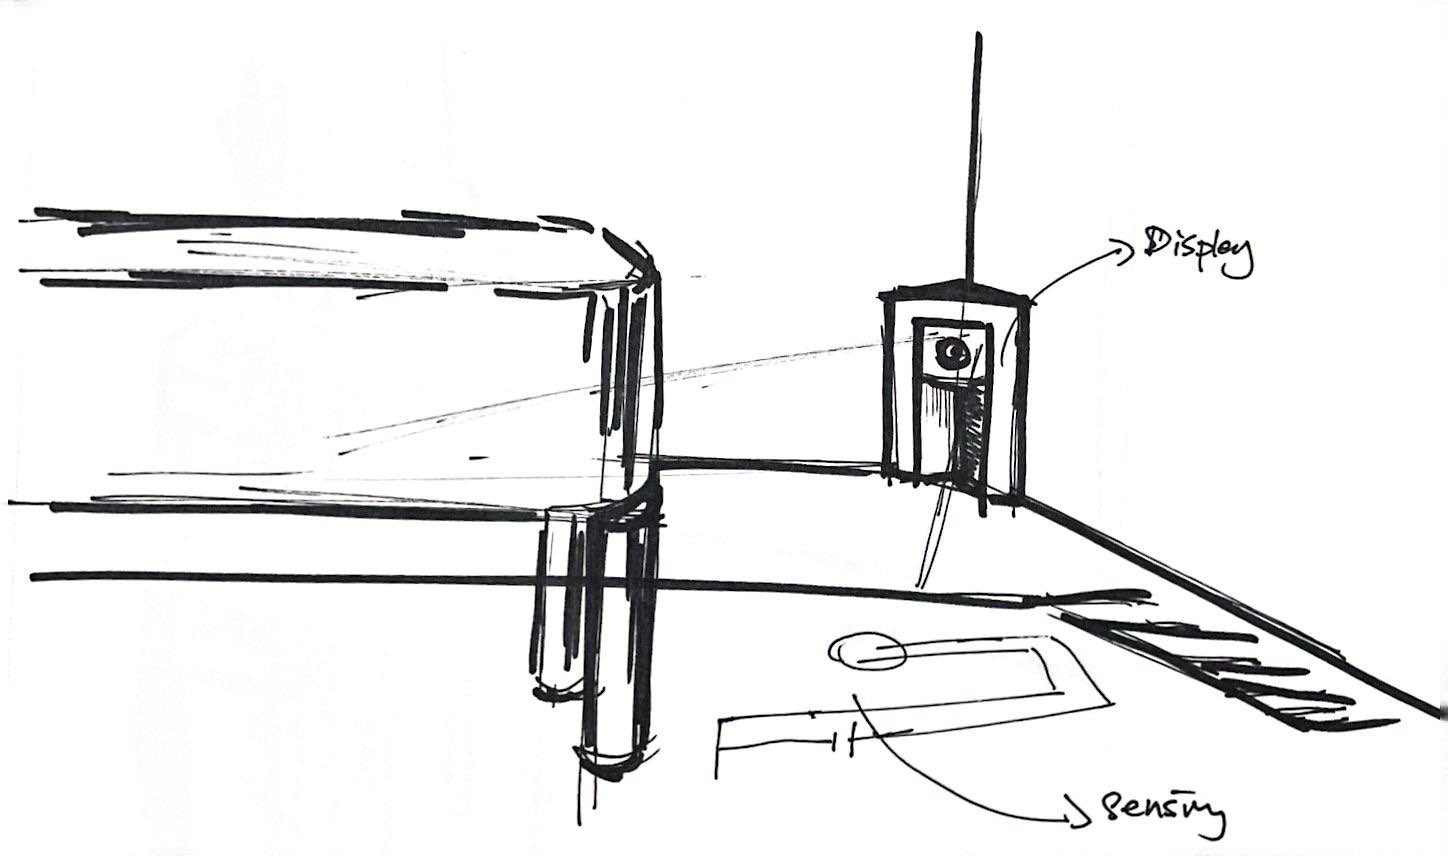 Display
Sensing